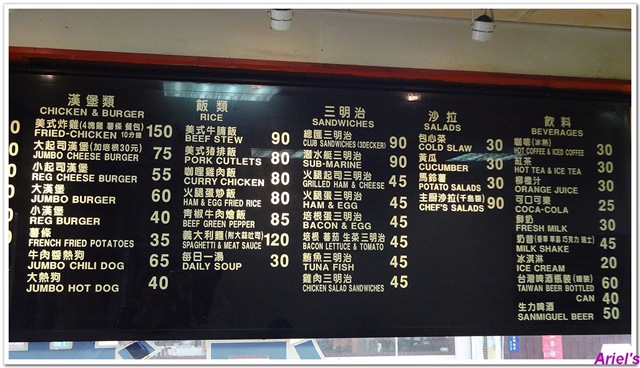 漢堡類
CHICKEN & BURGER
美式炸雞(4塊雞 薯條 餐包) 150
FRIED-CHICKEN 10分鐘
大起司漢堡(加培根30元) 75
JUMBO CHEESE BURGER
小起司漢堡 55
REG CHEESE BURGER
大漢堡 60
JUMBO BURGER
小漢堡 40
REG BURGER
薯條 35
FRENCH FRIED POTATOES
牛肉醬熱狗 65
JUMBO CHILI DOG
大熱狗 40
JUMBO HOT DOG
飯類
RICE
美式牛腩飯 90
BEEF STEW
美式豬排飯 90
PORK CUTLETS
咖哩雞肉飯 80
CURRY CHICKEN
火腿蛋炒飯 80
HAM & EGG FRIED RICE
青椒牛肉燴飯 85
BEEF GREEN PEPPER
義大利麵(附大蒜吐司) 120
SPAGHETTI & MEAT SAUCE
每日一湯 30
DAILY SOUP
三明治
SANDWICHES
總匯三明治 90
CLUB SANDWICHES (3DECKER)
潛水艇三明治 90
SUB-MARINE
火腿起司三明治 45
GRILLED HAM & CHEESE
火腿蛋三明治 45
HAM & EGG
培根蛋三明治 45
BACON & EGG
培根 蕃茄 生菜三明治 45
BACON LETTUCE & TOMATO
鮪魚三明治 45
TUNA FISH
雞肉三明治 45
CHICKEN SALAD SANDWICHES
沙拉
SALADS
包心菜 30
COLD SLAW
黃瓜 30
CUCUMBER
馬鈴薯 30
POTATO SALADS
主廚沙拉(千島醬) 90
CHEF'S SALADS
飲料
BEVERAGES
咖啡(冰熱) 30
HOT COFFEE & ICED COFFEE
紅茶 30
HOT TEA & ICE TEA
柳橙汁 30
ORANGE JUICE
可口可樂 25
COCA-COLA
鮮奶 30
FRESH MILK
奶昔(香草 草莓 巧克力 瑞士) 45
MILK SHAKE
冰淇淋 20
ICE CREAM
台灣啤酒瓶裝(罐裝) 60
TAIWAN BEER BOTTLED
CAN 40
生力啤酒 50
SANMIGUEL BEER
Ariel's